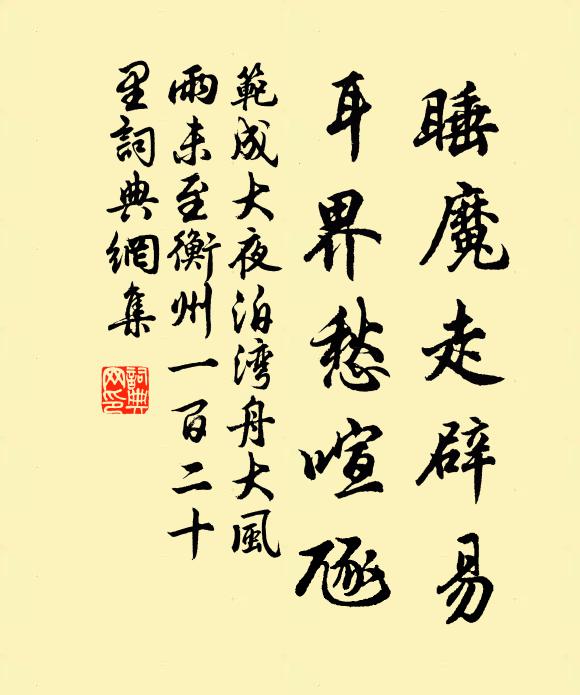 睡魔走辟易
耳界愁喧豗
範成大夜泊湾舟大風
雨未至衡州一百二十
里詞典網集
詞典
网印